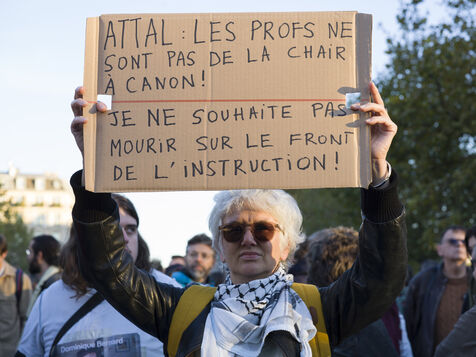 ATTAL : LES PROFS NE
SONT PAS DE LA CHAIR
À CANON !
JE NE SOUHAITE PAS
MOURIR SUR LE FRONT
DE L'INSTRUCTION !
Dominique Bernard